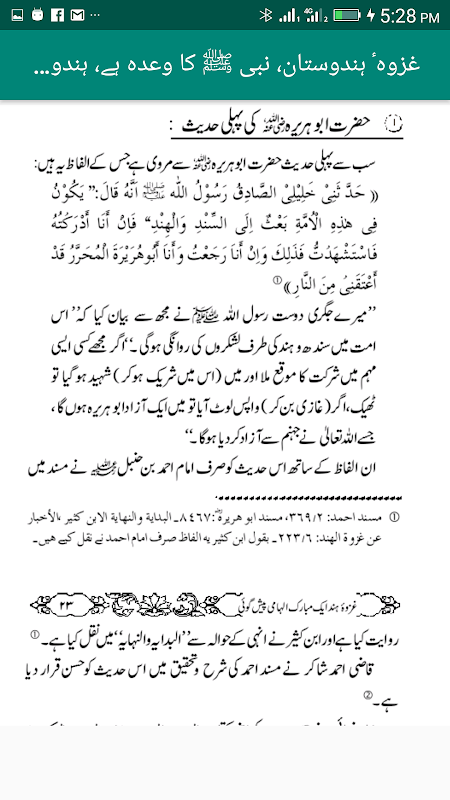 5:28 PM
غزوہٴ ہندوستان، نبی ﷺ کا وعدہ ہے، ہندو...
① حضرت ابو ہریرہ رضی اللہ عنہ کی پہلی حدیث :
سب سے پہلی حدیث حضرت ابو ہریرہ رضی اللہ عنہ سے مروی ہے جس کے الفاظ یہ ہیں:
(( حَدَّثَنِیْ خَلِیْلِیْ الصَّادِقُ رَسُوْلُ اللّٰهِ ﷺ اَنَّهٗ قَالَ:’’ یَکُوْنُ
فِی هٰذِهِ الْاُمَّةِ بَعْثٌ اِلَی السِّنْدِ وَالْهِنْدِ‘‘ فَإِنْ أَنَا أَدْرَکْتُهٗ
فَاسْتَشْهَدْتُّ فَذٰلِكَ وَاِنْ أَنَا رَجَعْتُ وَأَنَا أَبُوهُرَیْرَةَ الْمُحَرَّرُ قَدْ
أَعْتَقَنِیْ مِنَ النَّارِ)) ①
’’میرے جگری دوست رسول اللہ ﷺ نے مجھ سے بیان کیا کہ’’ اس
امت میں سندھ و ہند کی طرف لشکروں کی روانگی ہوگی ۔‘‘اگر مجھے کسی ایسی
مہم میں شرکت کا موقع ملا اور میں (اس میں شریک ہوکر) شہید ہوگیا تو
ٹھیک، اگر (غازی بن کر) واپس لوٹ آیا تو میں ایک آزاد ابو ہریرہ ہوں گا،
جسے اللہ تعالیٰ نے جہنم سے آزاد کر دیا ہوگا ۔‘‘
ان الفاظ کے ساتھ اس حدیث کو صرف امام احمد بن حنبل رحمہ اللہ نے مسند میں
① مسند احمد: ۳۶۹/۲، مسند ابو هریرةؓ: ۸۴۶۷۔ البدایة والنهایة الابن کثیر ،الأخبار
عن غزوة الهند: ۲۲۳/۶۔ بقول ابن کثیر یه الفاظ صرف امام احمد نے نقل کیے هیں۔
غزوۂ ہند ایک مبارک الہامی پیش گوئی
۲۳
روایت کیا ہے اور ابن کثیر نے انہی کے حوالہ سے ’’البدایہ والنہایہ‘‘ میں نقل کیا ہے۔ ①
قاضی احمد شاکر نے مسند احمد کی شرح و تحقیق میں اس حدیث کو حسن قرار دیا
ہے۔ ②